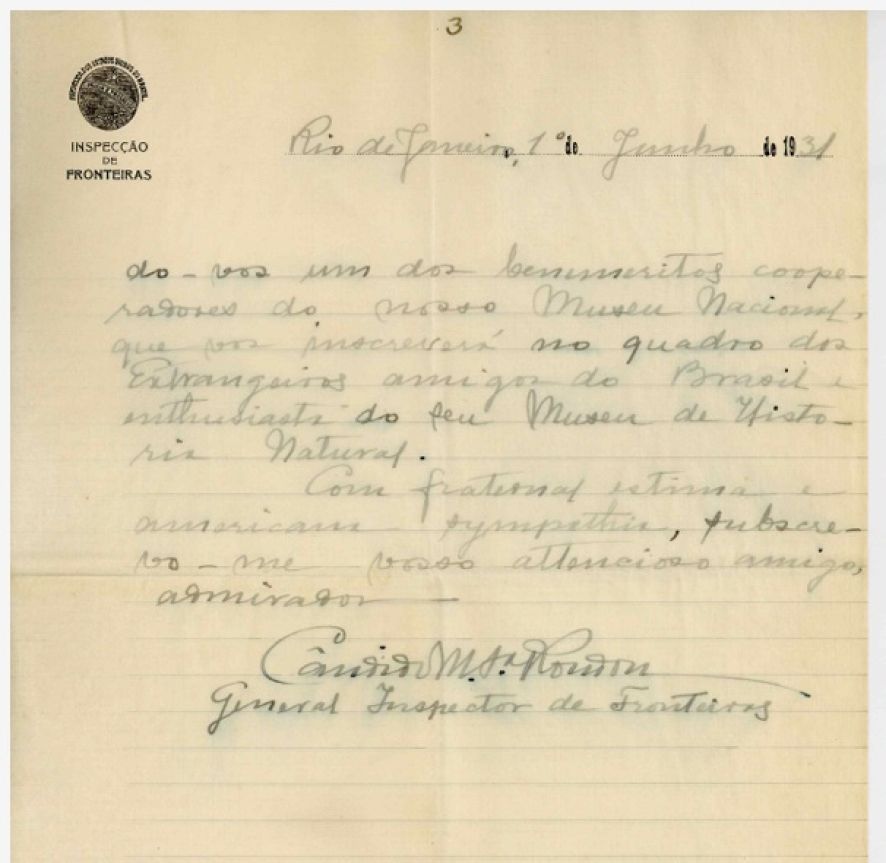 3
INSPECÇÃO
DE
FRONTEIRAS
Rio de Janeiro, 1º de Junho de 1931
do-vos um dos benemeritos coope-
radores do nosso Museu Nacional,
que vos inscreverá no quadro dos
Extrangeiros amigos do Brasil e
enthusiasta do seu Museu de Histo-
ria Natural.
Com fraternal estima e
americana sympathia, subscre-
vo-me vosso attencioso amigo,
admirador —
Cândido M. S. Rondon
General Inspector de Fronteiras